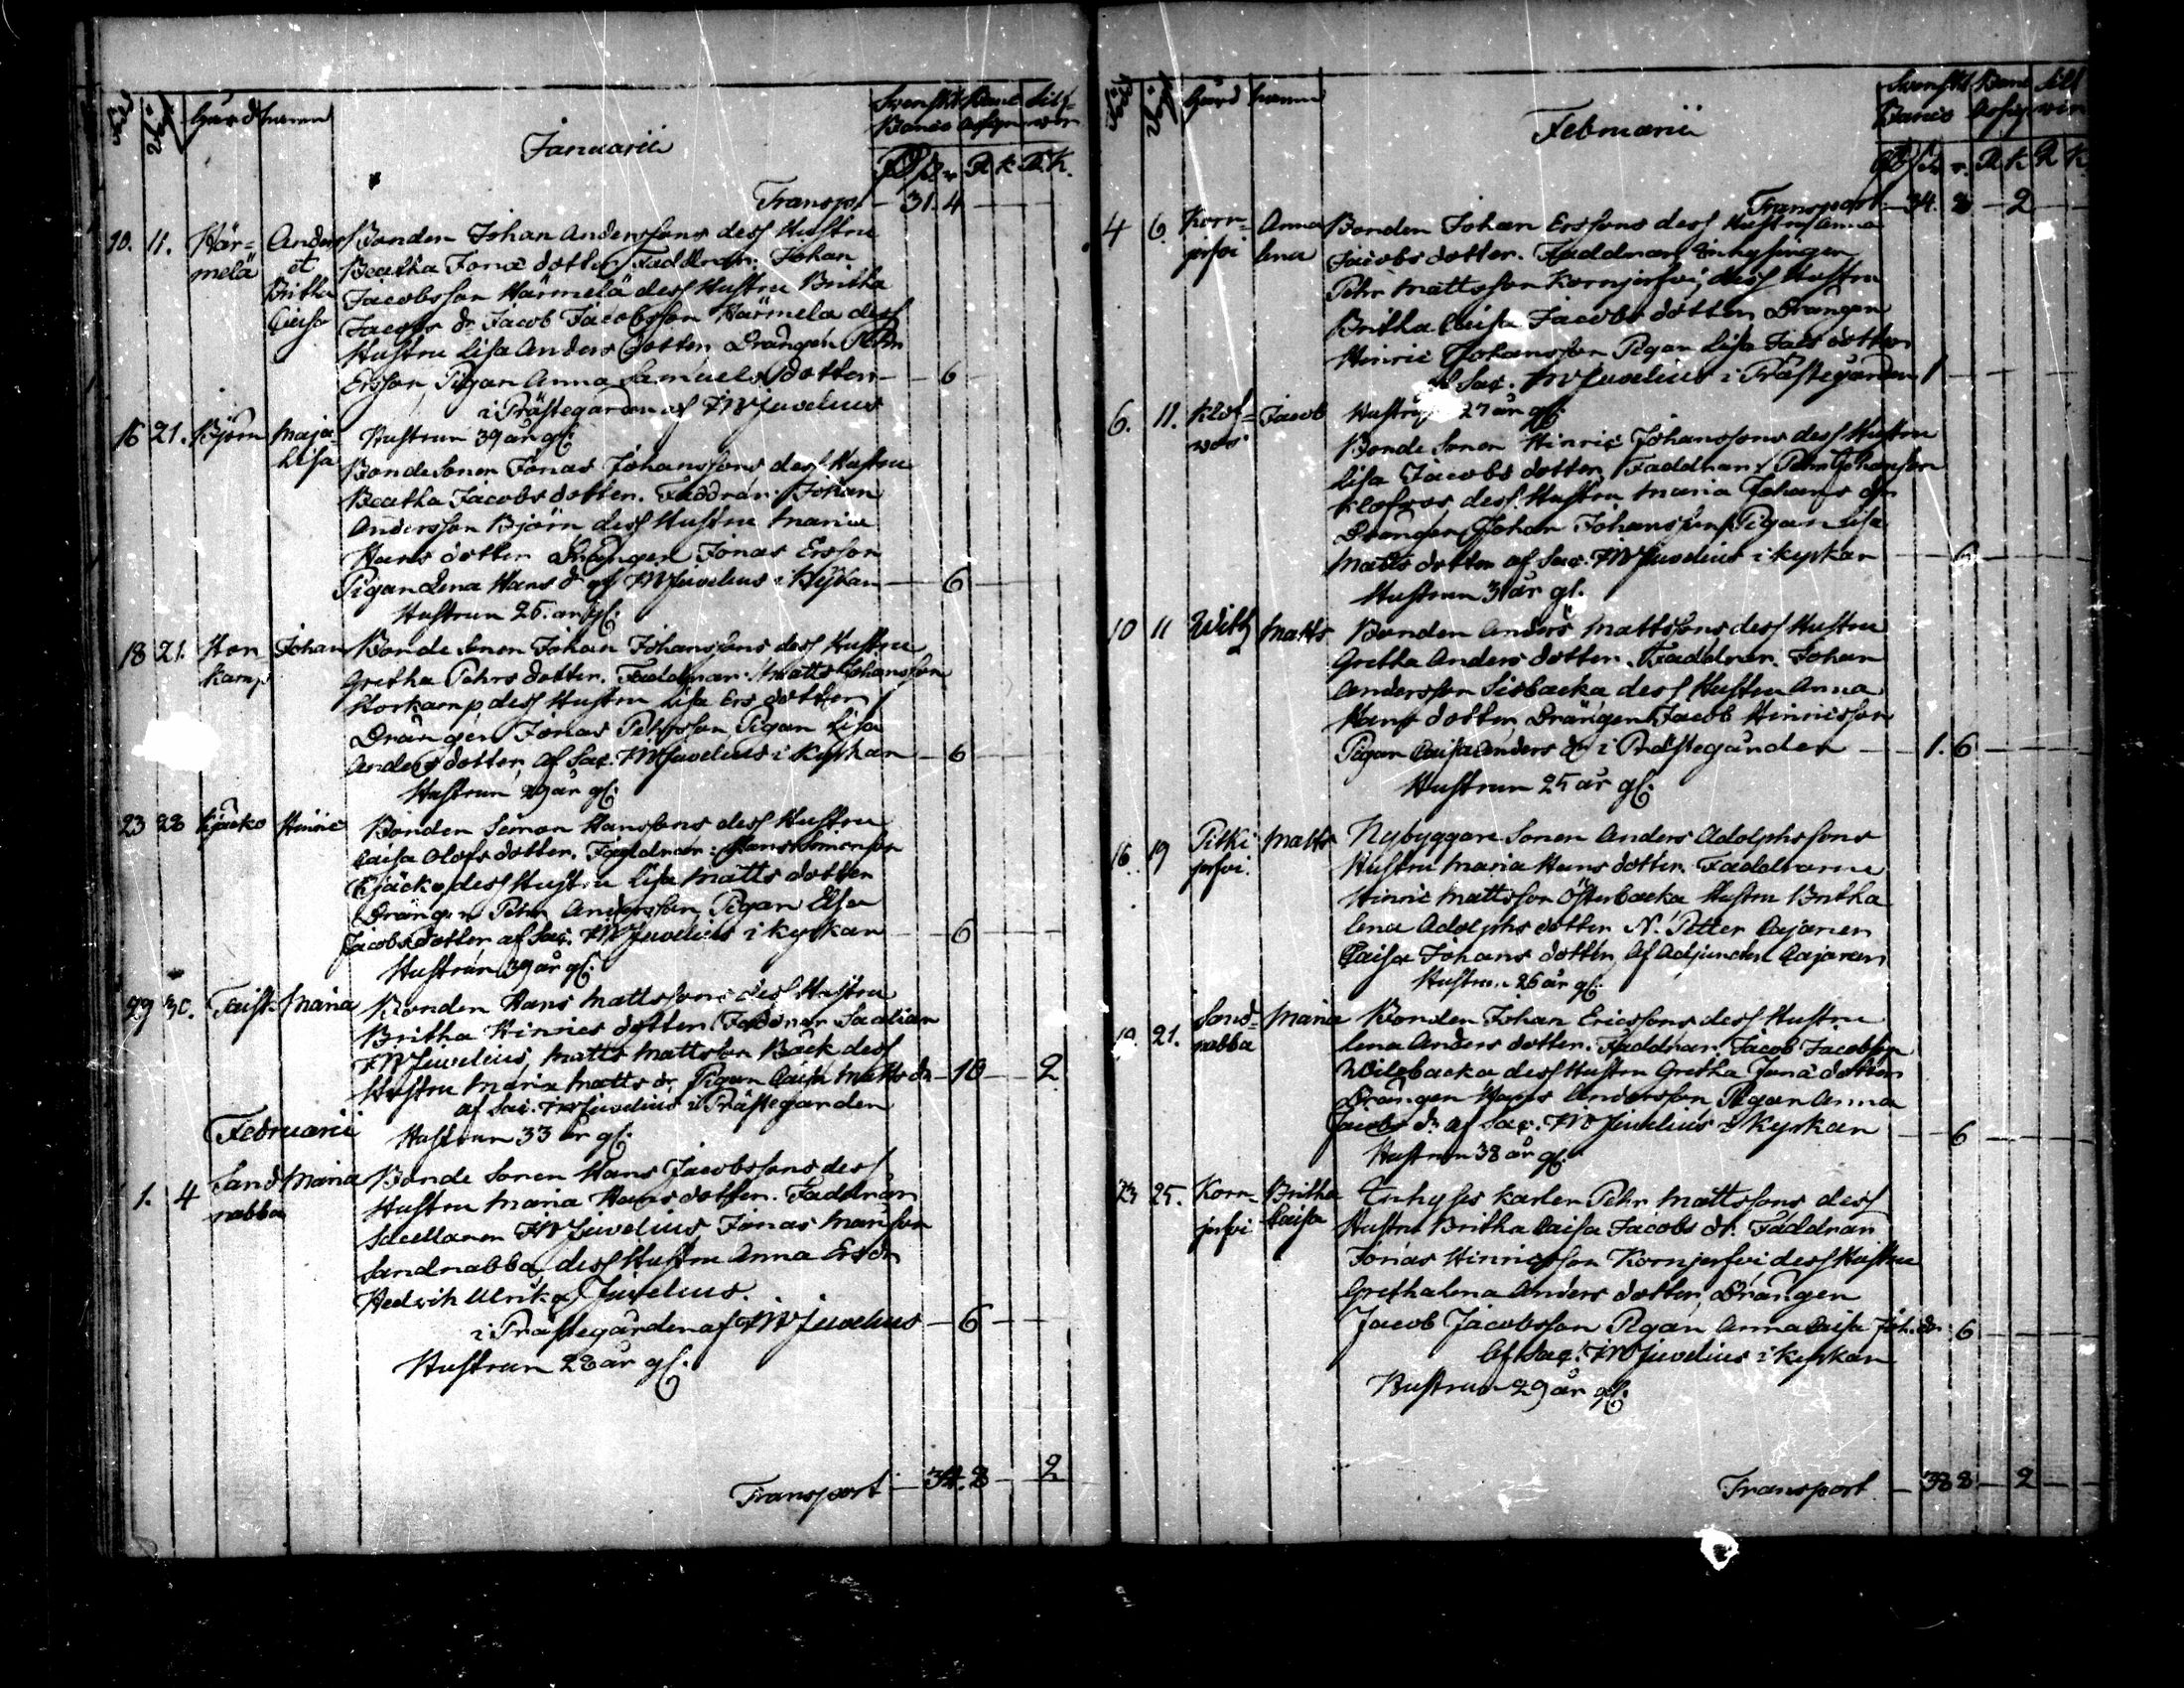 Januarii
Gårds namn
Svenskt Banco
Banco Assign
Silfwer
Transp. 31. 4
10. 11. Härmelä Anders et Britha Caisa
Bonden Johan Anderssons dess Hustru
Beatha Jonæ dotter Faddrar: Johan
Jacobsson Härmelä dess Hustru Britha
Jacobs dr Jacob Jacobsson Härmelä dess
Hustru Lisa Anders dotter, Drängen Pehr
Ersson, Pigan Anna Samuels dotter 6
i Prästegården af FW Juvelius
Hustrun 39 år gl.
16 21. Björn Maja Lisa
Bonde Sonen Jonas Johanssons dess Hustru
Beatha Jacobs dotter. Faddrar: Johan
Andersson Björn dess Hustru Maria
Hans dotter Drängen Jonas Ersson
Pigan Lena Hans dr af FW Juvelius i Kyrkan 6
Hustrun 26. år gl.
18 21. Honkamp Johan
Bonde Sonen Johan Johanssons dess Hustru
Gretha Pehrs dotter. Faddrar: Matts Johansson
Korkamp dess Hustru Lisa Ers dotter
Drängen Jonas Pehrsson Pigan Lisa
Anders dotter, af Sac. FW Juvelius i Kyrkan 6
Hustrun 29 år gl.
23 28 Kjäcko Hinric
Bonden Simon Hanssons dess Hustru
Caisa Olofs dotter. Faddrar: Hans Simonsson
Kjäcko, dess Hustru Lisa Matts dotter
Drängen Pehr Andersson, Pigan Elsa
Jacobs dotter af Sac. FW Juvelius i Kyrkan 6
Hustrun 39 år gl.
29 30. Taist Maria
Bonden Hans Mattssons dess Hustru
Britha Hinrics dotter. Faddrar
FW Juvelius, Matts Mattsson Bäck dess
Hustru Maria Matts dr Pigan Caisa Matts dr 10 2
af Sac. FW Juvelius i Prästegården
Hustrun 33 år gl.
Februarii
1. 4 Sandnabba Maria
Bonde Sonen Hans Jacobssons dess
Hustru Maria Hans dotter. Faddrar
Sacellanen FW Juvelius, Jonas Mansson
Sandnabba, dess Hustru Anna Ers dr
Hedvik Ulrika Juvelius.
i Prästegården af FW Juvelius 6
Hustrun 28 år gl.
Transport 34. 8 2
Gårds namn
Februarii
Svenskt Banco
Banco Assig
Silfwer
Transport 34. 8 2
4 6. Kornjerfvi Anna Lena
Bonden Johan Erssons dess Hustru Anna
Jacobs dotter. Faddrar Inhysingen
Pehr Mattsson Kornjerfvi, dess Hustru
Britha Caisa Jacobs dotter Drängen
Hinric Johansson Pigan Lisa Jacs dotter
af Sac. FW Juvelius i Prästegården 1
Hustrun 27 år gl.
6. 11. Jacob
Bonde Sonen Hinric Johanssons dess Hustru
Lisa Jacobs dotter, Faddrar: Pehr Johansson
dess Hustru Maria Johans dr
Drängen Johan Johansson, Pigan Lisa
Matts dotter af Sac. FW Juvelius i Kyrkan 6
Hustrun 31 år gl.
10 11 Witz Matts
Bonden Anders Mattssons dess Hustru
Gretha Anders dotter. Faddrar. Johan
Andersson Sisbacka dess Hustru Anna
Hans dotter Drängen Jacob Hinricsson
Pigan Caisa Anders dr i Prästegården 1. 6
Hustrun 25 år gl.
16. 19 Pitkijerfvi. Matts
Nybyggare Sonen Anders Adolphssons
Hustru Maria Hans dotter. Faddrarne
Hinric Mattsson Österbacka Hustru Britha
Lena Adolphs dotter N. Petter Cajanen
Caisa Johans dotter, Af Adjuncten Cajanen
Hustrun 26 år gl.
19. 21. Sandnabba Maria
Bonden Johan Ericssons dess Hustru
Lena Anders dotter. Faddrar. Jacob Jacobsson
Wilsbacka dess Hustru Gretha Jonæ dotter
Drängen Hans Andersson Pigan Anna
Jacobs dr af Sac. FW Juvelius i Kyrkan 6
Hustrun 38 år gl.
23 25. Kornjerfvi Britha Caisa
Inhyses Karlen Pehr Mattssons dess
Hustru Britha Caisa Jacobs dr. Faddrar
Jonas Hinricsson Kornjerfvi dess Hustru
Gretha Lena Anders dotter, Drängen
Jacob Jacobsson Pigan Anna Caisa Joh. dr 6
Af Sac. FW Juvelius i Kyrkan
Hustrun 29 år gl.
Transport 38 8 2